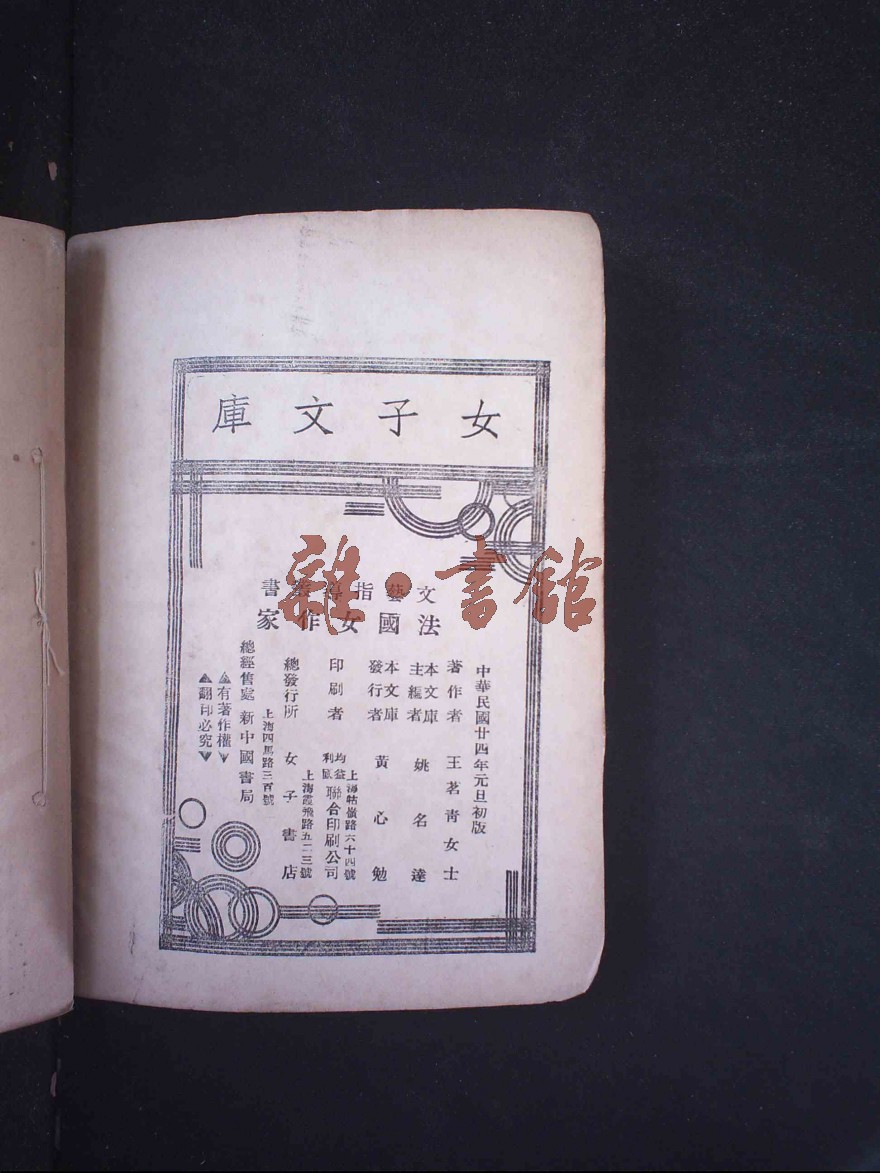 女子文庫
文藝指導叢書
法國女作家
中華民國廿四年元旦初版
著作者 王茗青女士
本文庫主編者 姚名達
本文庫發行者 黃心勉
印刷者 均益利國聯合印刷公司
上海牯嶺路六十四號
總發行所 女子書店
上海霞飛路五二三號
總經售處 新中國書局
上海四馬路三百號
▲有著作權▼
▲翻印必究▼
雜·書館